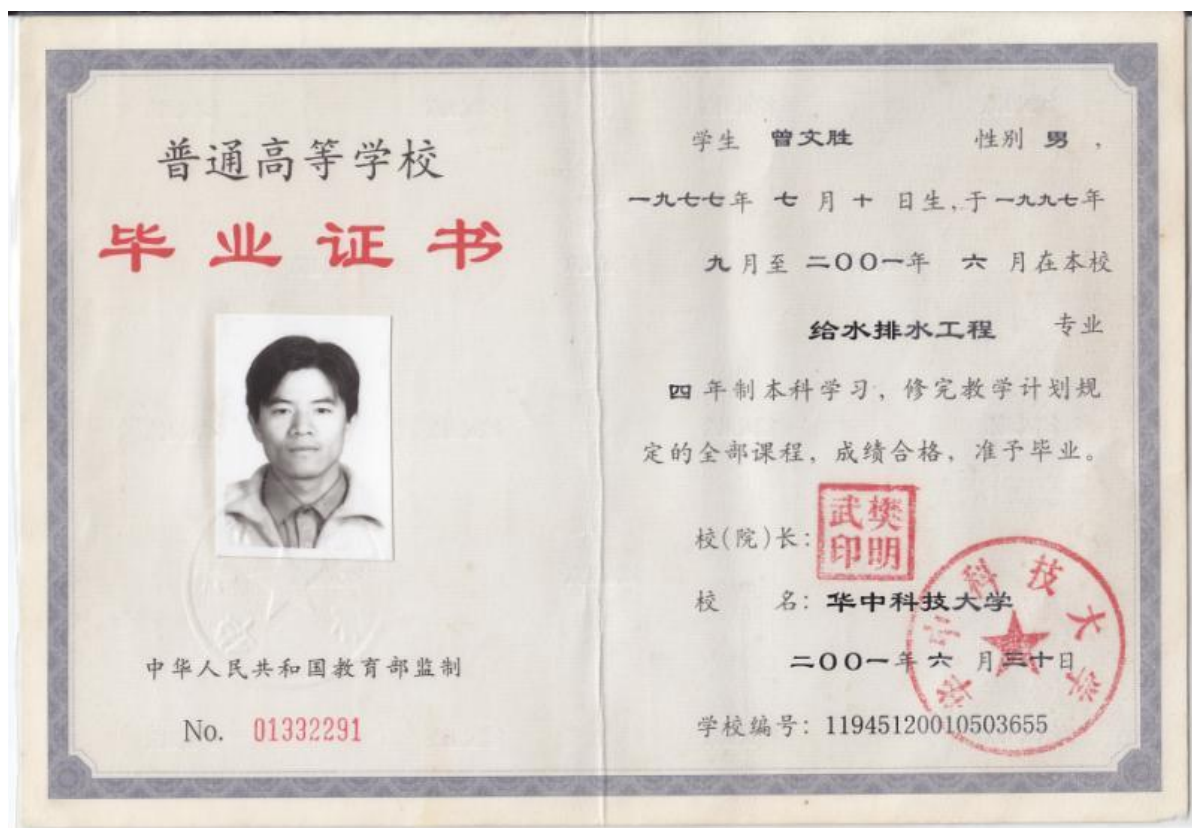 普通高等学校
毕业证书
中华人民共和国教育部监制
No. 01332291
学生 曾文胜 性别 男，
一九七七年 七 月 十 日生,于一九九七年
九月至 二〇〇一年 六 月在本校
给水排水工程 专业
四 年制本科学习，修完教学计划规
定的全部课程，成绩合格，准予毕业。
校(院)长：
樊明武印
校 名：华中科技大学
华中科技大学
二〇〇一年 六 月三十日
学校编号：11945120010503655